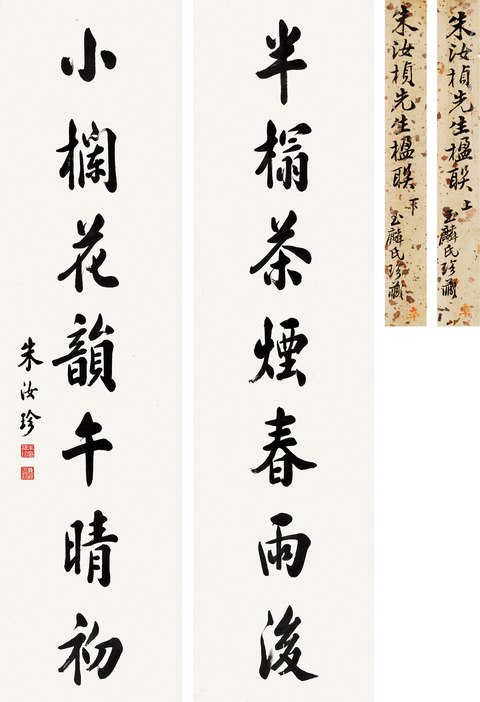 朱汝楨先生楹联 上
玉麟氏珍藏
朱汝楨先生楹联 下
玉麟氏珍藏
半榻茶煙春雨後
小欄花韻午晴初
朱汝珍